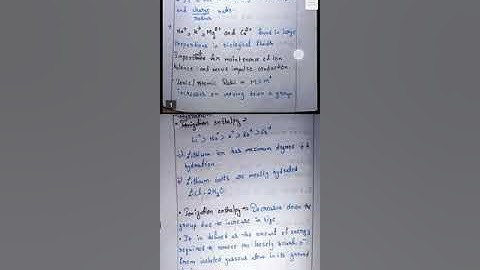 and charge ratio
radius
Na⁺, K⁺, Mg²⁺ and Ca²⁺ found in large
proportions in biological fluids
Important for maintenance of ion
balance and nerve impulse conduction
Ionic/Atomic Radii → M > M⁺
Increases on moving down a group
1
• Ionization enthalpy →
Li⁺ > Na⁺ > K⁺ > Rb⁺ > Cs⁺
a) Lithium ion has maximum degree of
hydration
b) Lithium salts are mostly hydrated
LiCl·2H₂O
• Ionization enthalpy → Decreases down the
group due to increase in size.
• It is defined as the amount of energy
required to remove the loosely bound e⁻
from isolated gaseous atom in its ground